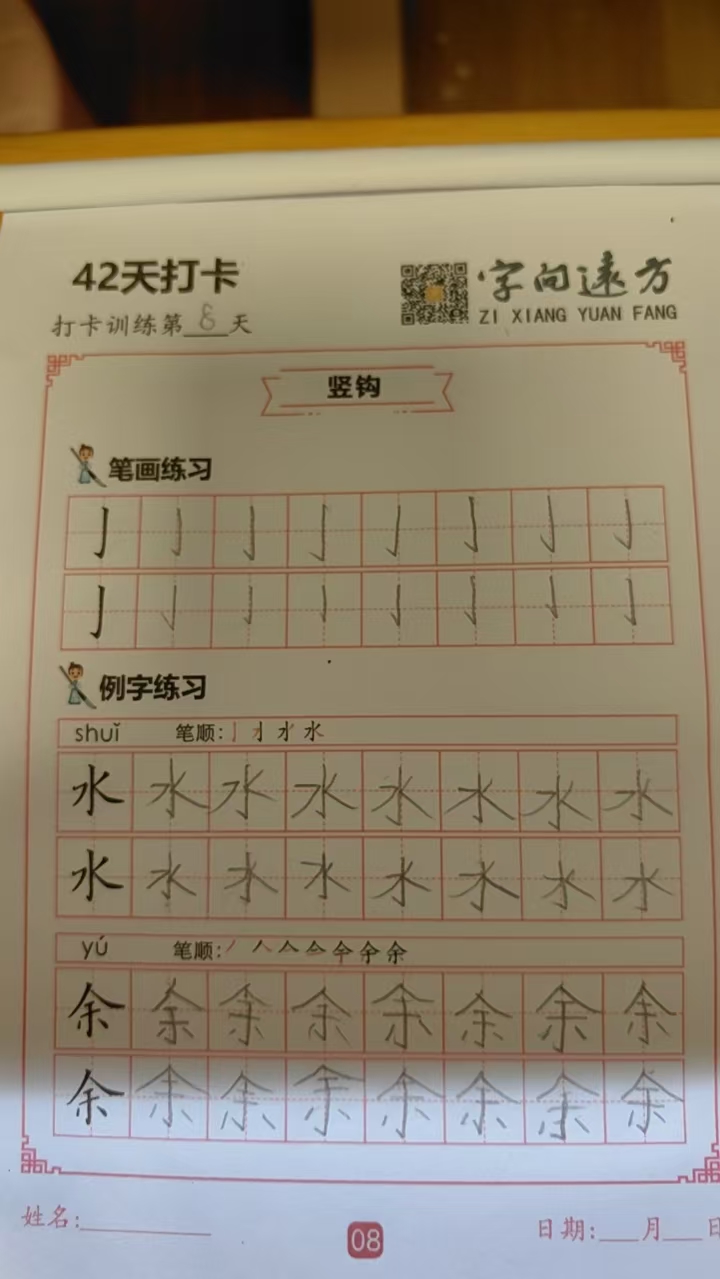 42天打卡
字向远方
ZI XIANG YUAN FANG
打卡训练第8天
竖钩
笔画练习
亅亅亅亅亅亅亅亅
亅亅亅亅亅亅亅亅
例字练习
shuǐ 笔顺:
水水水水水水水水
水水水水水水水水
yú 笔顺:
余余余余余余余余
余余余余余余余余
姓名:
08
日期:___月___日